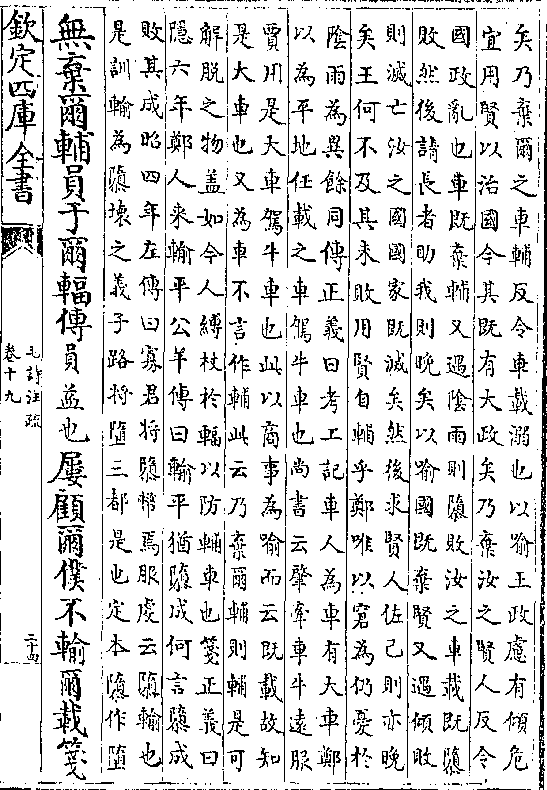 矣乃棄爾之車輔反令車載溺也以喻王政慮有傾危
宜用賢以治國今其既有大政矣乃棄汝之賢人反令
國政亂也車既棄輔又遇陰雨則隳敗汝之車載既隳
敗然後請長者助我則晚矣以喻國既棄賢又遇傾敗
則滅亡汝之國國家既滅矣然後求賢人佐己則亦晚
矣王何不及其未敗用賢自輔乎鄭唯以窘為仍憂於
陰雨為異餘同傳正義曰考工記車人為車有大車鄭
以為平地任載之車駕牛車也尚書云肇牽車牛遠服
賈用是大車駕牛車也此以商事為喻而云既載故知
是大車也又為車不言作輔此云乃棄爾輔則輔是可
解脫之物蓋如今人縛杖於輻以防輔車也箋正義曰
隱六年鄭人來輸平公羊傳曰輸平猶隳成何言隳成
敗其成昭四年左傳曰寡君將隳幣焉服虔云隳輸也
是訓輸為隳壞之義子路將隳三都是也定本隳作墮
無棄爾輔員于爾輻傳員益也屢顧爾僕不輸爾載箋
欽定四庫全書
毛詩注疏
卷十九
二十四